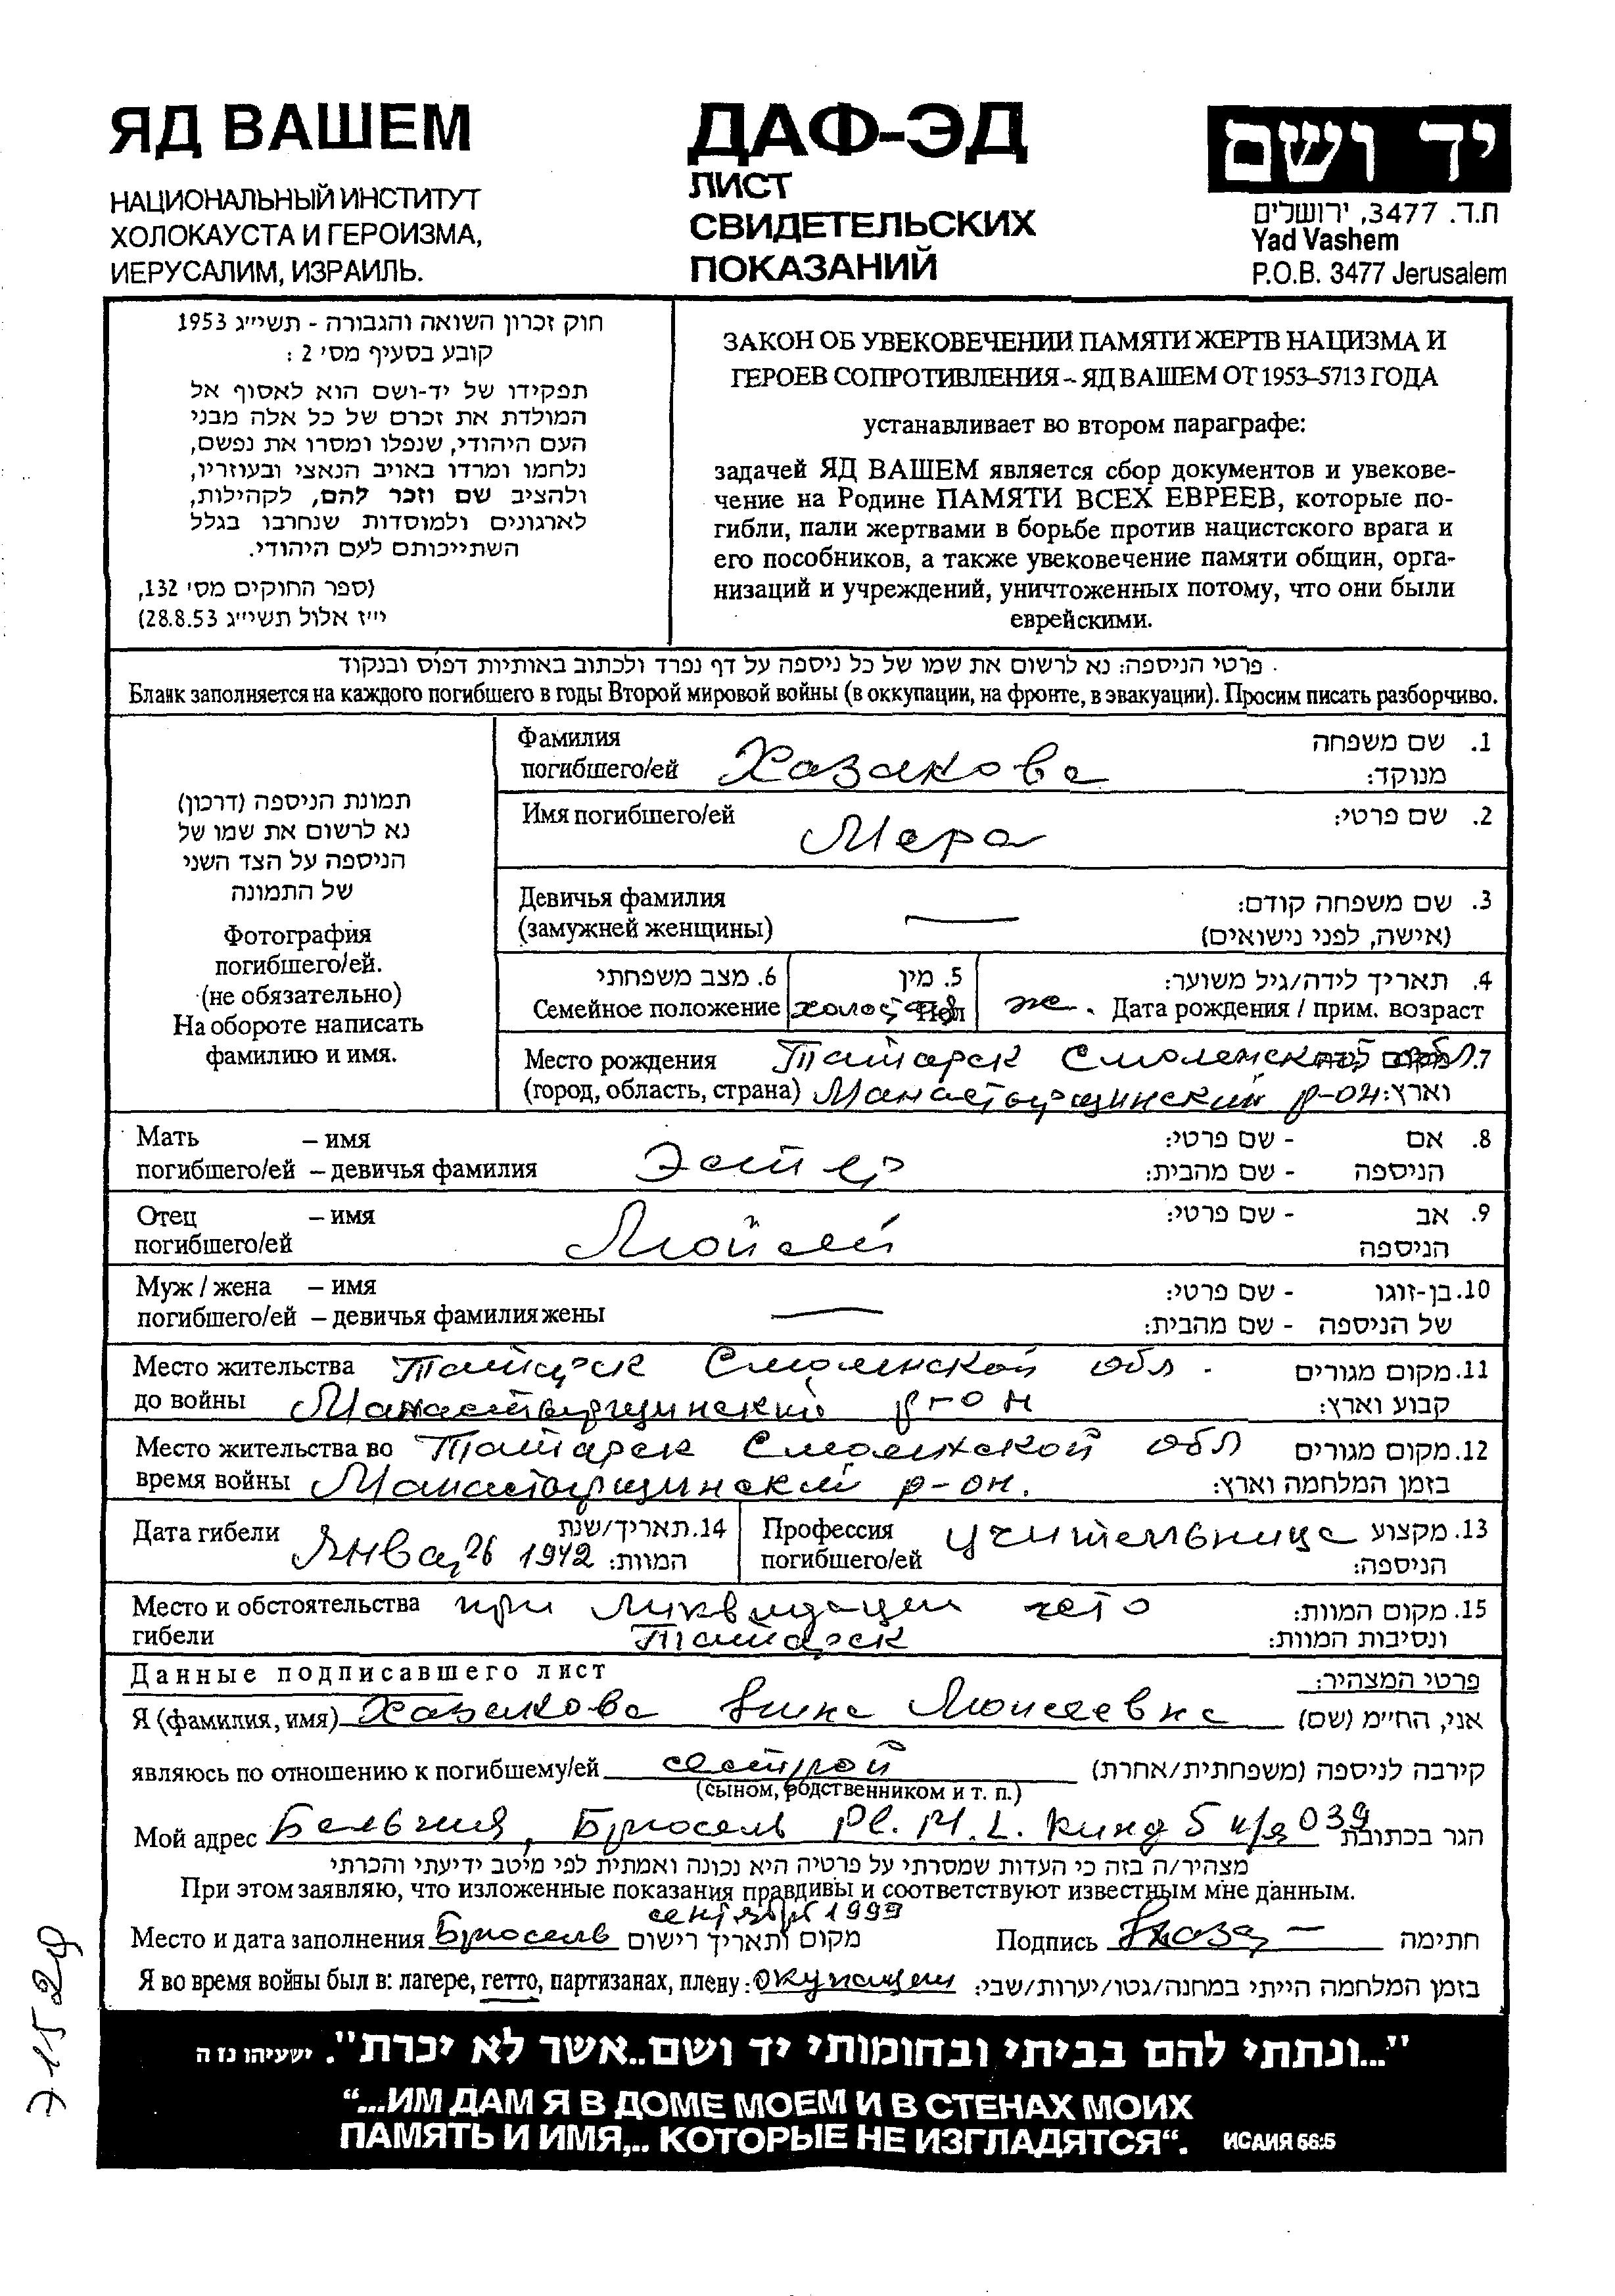 ЯД ВАШЕМ
НАЦИОНАЛЬНЫЙ ИНСТИТУТ
ХОЛОКАУСТА И ГЕРОИЗМА,
ИЕРУСАЛИМ, ИЗРАИЛЬ.
ДАФ-ЭД
ЛИСТ
СВИДЕТЕЛЬСКИХ
ПОКАЗАНИЙ
יד ושם
ת.ד. 3477, ירושלים
Yad Vashem
P.O.B. 3477 Jerusalem
חוק זכרון השואה והגבורה - תשי״ג 1953
קובע בסעיף מס׳ 2 :
תפקידו של יד-ושם הוא לאסוף אל
המולדת את זכרם של כל אלה מבני
העם היהודי, שנפלו ומסרו את נפשם,
נלחמו ומרדו באויב הנאצי ובעוזריו,
ולהציב שם וזכר להם, לקהילות,
לארגונים ולמוסדות שנחרבו בגלל
השתייכותם לעם היהודי.
(ספר החוקים מס׳ 132,
י״ז אלול תשי״ג 28.8.53)
ЗАКОН ОБ УВЕКОВЕЧЕНИИ ПАМЯТИ ЖЕРТВ НАЦИЗМА И
ГЕРОЕВ СОПРОТИВЛЕНИЯ – ЯД ВАШЕМ ОТ 1953–5713 ГОДА
устанавливает во втором параграфе:
задачей ЯД ВАШЕМ является сбор документов и увекове-
чение на Родине ПАМЯТИ ВСЕХ ЕВРЕЕВ, которые по-
гибли, пали жертвами в борьбе против нацистского врага и
его пособников, а также увековечение памяти общин, орга-
низаций и учреждений, уничтоженных потому, что они были
еврейскими.
פרטי הניספה: נא לרשום את שמו של כל ניספה על דף נפרד ולכתוב באותיות דפוס ובנקוד
Бланк заполняется на каждого погибшего в годы Второй мировой войны (в оккупации, на фронте, в эвакуации). Просим писать разборчиво.
תמונת הניספה (דרכון)
נא לרשום את שמו של
הניספה על הצד השני
של התמונה
Фотография
погибшего/ей.
(не обязательно)
На обороте написать
фамилию и имя.
Фамилия 1. שם משפחה
погибшего/ей Хазакова מנוקד:
Имя погибшего/ей Мера 2. שם פרטי:
Девичья фамилия 3. שם משפחה קודם:
(замужней женщины) — (אישה, לפני נישואים)
6. מצב משפחתי 5. מין 4. תאריך לידה/גיל משוער:
Семейное положение Пол ж. Дата рождения / прим. возраст
Место рождения Татарск Смоленской обл 7.
(город, область, страна) Манастырщинский р-он וארץ:
Мать – имя 8. אם - שם פרטי:
погибшего/ей – девичья фамилия Эстер הניספה - שם מהבית:
Отец – имя 9. אב - שם פרטי:
погибшего/ей Мойсей הניספה
Муж / жена – имя 10. בן-זוגו - שם פרטי:
погибшего/ей – девичья фамилия жены — של הניספה - שם מהבית:
Место жительства Татарск Смоленской обл. 11. מקום מגורים
до войны Манастырщинский р-он קבוע וארץ:
Место жительства во Татарск Смоленской обл 12. מקום מגורים
время войны Манастырщинский р-он. בזמן המלחמה וארץ:
Дата гибели 14. תאריך/שנת
Январь 26 1942 המוות:
Профессия учительница 13. מקצוע
погибшего/ей הניספה:
Место и обстоятельства при ликвидации гето 15. מקום המוות:
гибели Татарск ונסיבות המוות:
Данные подписавшего лист פרטי המצהיר:
Я (фамилия, имя) Хазакова Нина Моисеевна אני, החי״מ (שם)
являюсь по отношению к погибшему/ей сестрой קירבה לניספה (משפחתית/אחרת)
(сыном, родственником и т. п.)
Мой адрес Бельгия, Брюсель Pl. M. L. Кинд 5 п/я 039 הגר בכתובת
מצהיר/ה בזה כי העדות שמסרתי על פרטיה היא נכונה ואמתית לפי מיטב ידיעתי והכרתי
При этом заявляю, что изложенные показания правдивы и соответствуют известным мне данным.
сентябрь 1999
Место и дата заполнения Брюсель מקום ותאריך רישום Подпись חתימה
Я во время войны был в: лагере, гетто, партизанах, плену: окупации בזמן המלחמה הייתי במחנה/גטו/יערות/שבי:
"...ונתתי להם בביתי ובחומותי יד ושם..אשר לא יכרת". ישעיהו נז ה
“...ИМ ДАМ Я В ДОМЕ МОЕМ И В СТЕНАХ МОИХ
ПАМЯТЬ И ИМЯ,.. КОТОРЫЕ НЕ ИЗГЛАДЯТСЯ“. ИСАИЯ 56:5